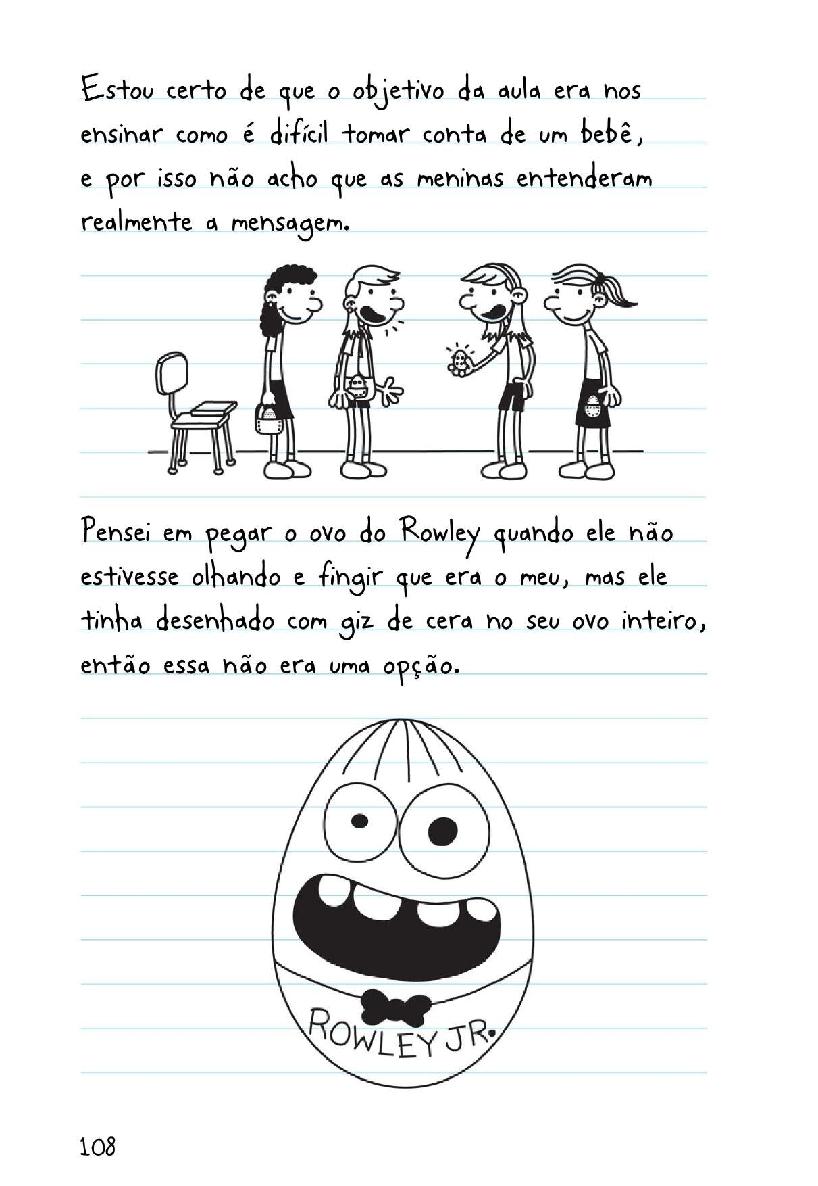 Estou certo de que o objetivo da aula era nos
ensinar como é difícil tomar conta de um bebê,
e por isso não acho que as meninas entenderam
realmente a mensagem.
Pensei em pegar o ovo do Rowley quando ele não
estivesse olhando e fingir que era o meu, mas ele
tinha desenhado com giz de cera no seu ovo inteiro,
então essa não era uma opção.
ROWLEY JR.
108